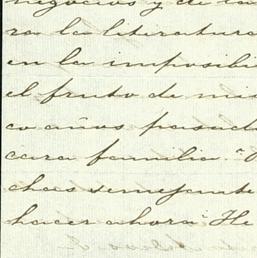 negocios y de la
ra la literatura
en la imposibi
el fruto de mis
co años pasad
cara familia. "
chas semejante
hacer ahora". He